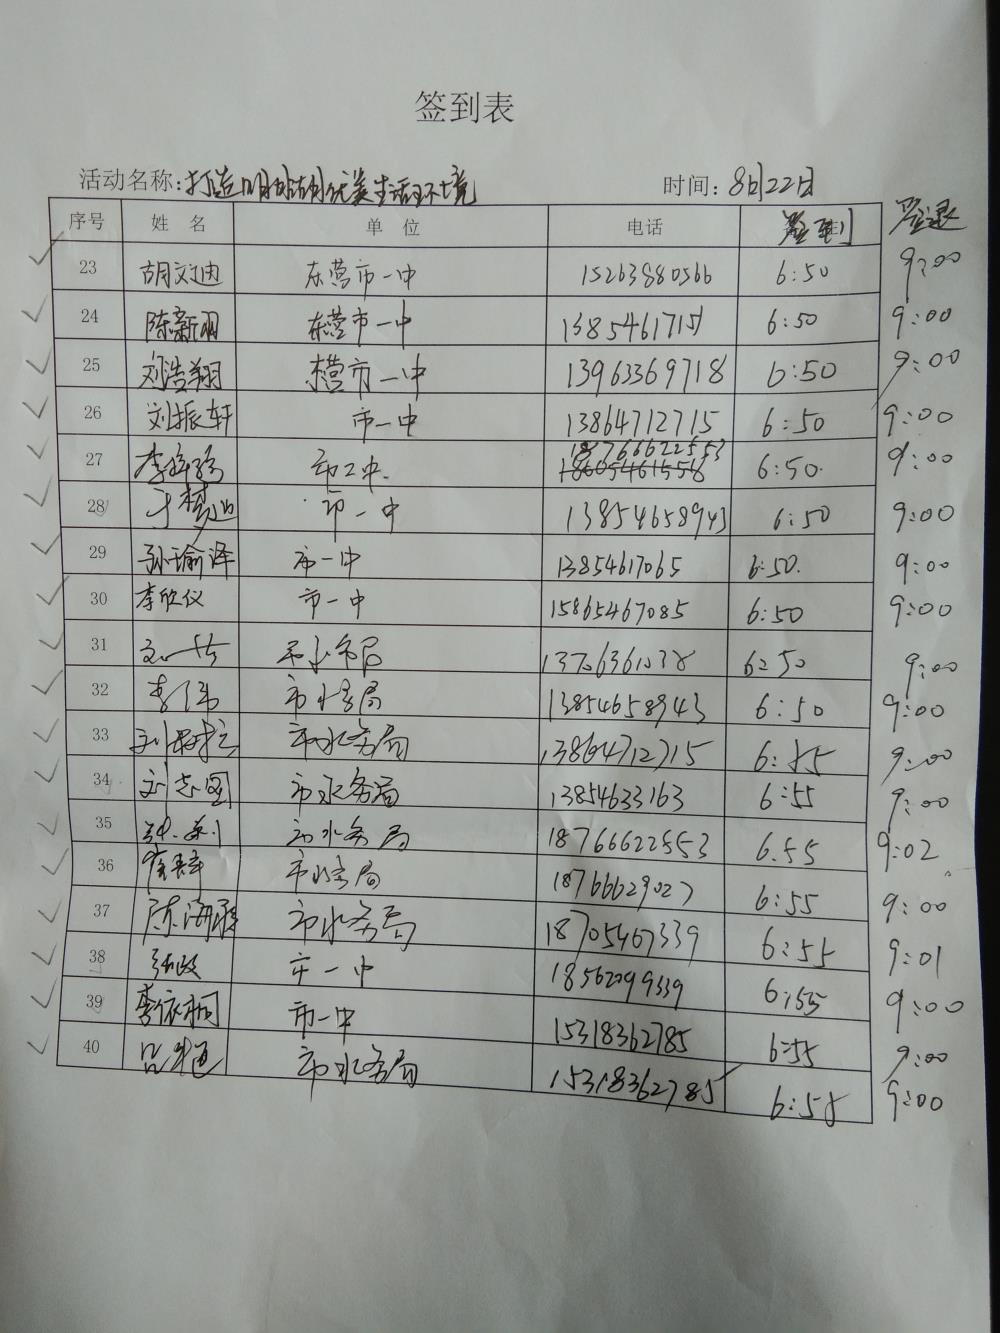 签到表
活动名称：打造明月湖优美生活环境 时间：8月22日
序号 姓名 单位 电话 签到 签退
23 胡文迪 东营市一中 15263880566 6:50 9:00
24 陈新羽 东营市一中 1385461715 6:50 9:00
25 刘浩翔 东营市一中 13963369718 6:50 9:00
26 刘振轩 市一中 13864712715 6:50 9:00
27 市二中. 18766622553 18605461558 6:50. 9:00
28 于楚迪 市一中 13854658943 6:50 9:00
29 孙瑜泽 市一中 13854617065 6:50. 9:00
30 李欣仪 市一中 15865467085 6:50 9:00
31 市水务局 6:50 9:00
32 李伟 市水务局 13854658943 6:50 9:00
33 市水务局 13864712715 6:55 9:00
34 刘志国 市水务局 13854633163 6:55 9:00
35 市水务局 18766622553 6.55 9:02
36 市水务局 18766629027 6:55 9:00
37 陈海 市水务局 18705467339 6:55 9:01
38 张政 市一中 18562099339 6:55 9:00
39 李依桐 市一中 15318362785 6:55 9:00
40 吕 市水务局 15318362785 6:58 9:00